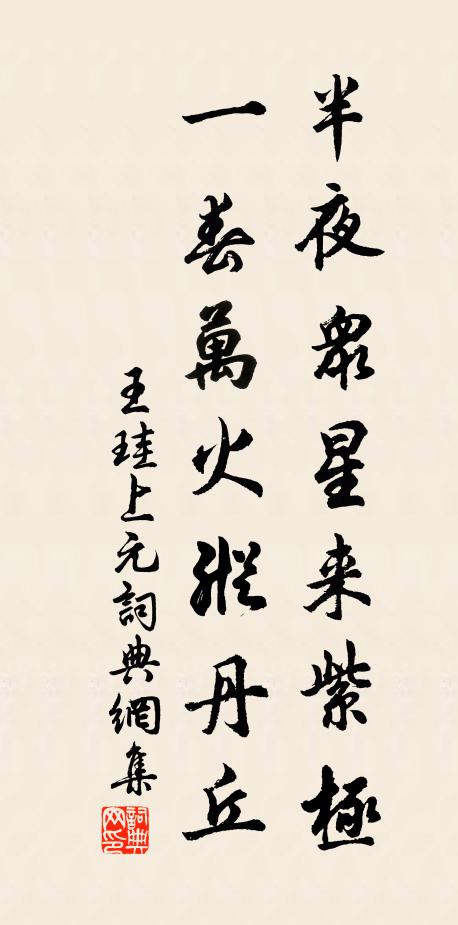 半夜眾星来紫極
一春萬火縱丹丘
王珪上元詞典網集
詞典網印